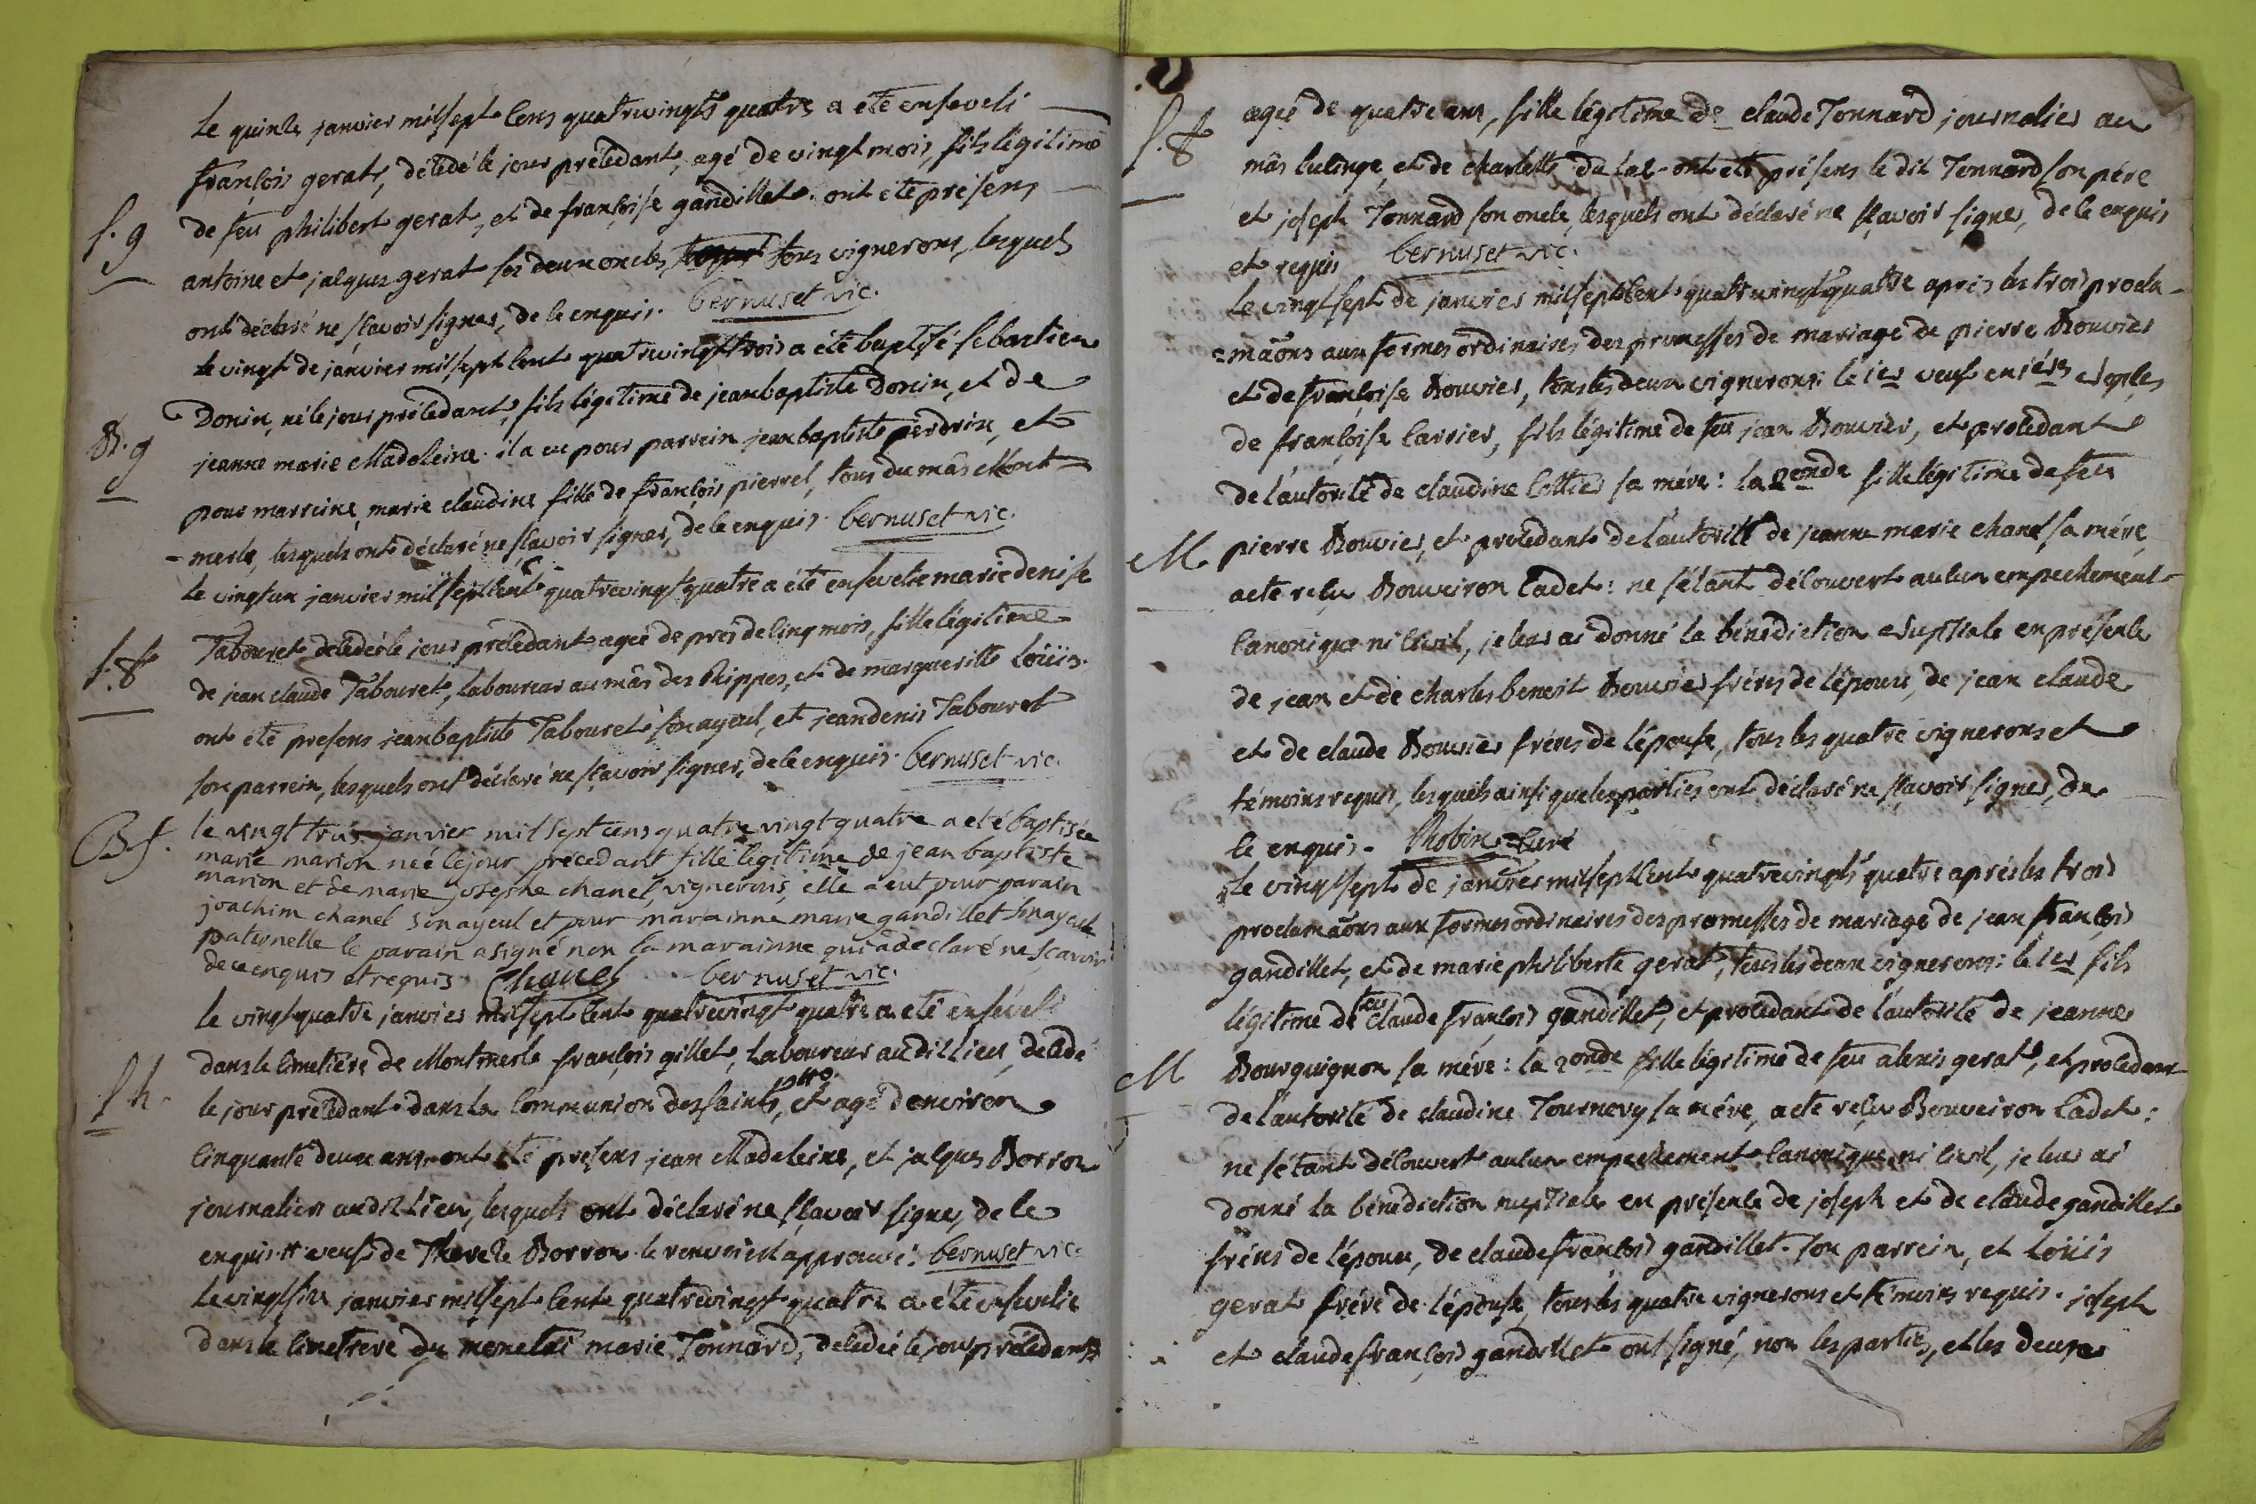 Le quinze janvier mil sept cens quatrevingts quatre a été enseveli
françois gerat, décédé le jour précédant, agé de vingt mois, fils légitime
de feu philibert gerat, et de françoise gandillet. ont été présens
s. g
antoine et jacques gerat ses deux oncles, tous vignerons, lesquels
ont déclaré ne sçavoir signer, de ce enquis. bernuset vic.
Le vingt de janvier mil sept cent quatrevingt trois a été baptisé sebastien
Donin, né le jour précédant, fils légitime de jean baptiste Donin, et de
B. g
jeanne marie Madeleine. il a eu pour parrein jean baptiste perdrix, et
pour marreine, marie claudine fille de françois pierrel, tous du mâs Mont
-merle, lesquels ont déclaré ne sçavoir signer, de ce enquis. bernuset vic.
Le vingt un janvier mil sept cent quatrevingt quatre a été ensevelie marie denise
Tabouret décédée le jour précédant agée de pres de cinq mois, fille légitime
s. f
de jean claude Tabouret, laboureur au mâs des Rippes, et de marguerite Loüis.
ont été presens jean baptiste Tabouret son ayeul, et jean denis Tabouret
son parrein, lesquels ont déclaré ne sçavoir signer, de ce enquis. bernuset vic.
B f.
le vingt trois janvier mil sept cens quatre vingt quatre a eté baptisée
marie marion neé le jour précedant fille legitime de jean baptiste
marion et de marie josephe chanel, vignerons, elle a eut pour parain
joachim chanel son ayeul et pour marainne marie gandillet son ayeule
paternelle le parain a signé non la marainne qui a declaré ne scavoir
de ce enquis et requis Chanel bernuset vic.
Le vingt quatre janvier mil sept cent quatrevingt quatre a eté enséveli
dans le cimetière de Montmerle françois gillet, Laboureur audit Lieu, décédé
s h.
le jour précédant dans la Communion des saints, et agé d'environ
cinquante deux ans. ont été présens jean Madeleine, et jacques Borron
journaliers audit Lieu, lesquels ont déclaré ne sçavoir signer, de ce
enquis # veuf de Therese Borron. le renvoi est approuvé. bernuset vic.
Le vingt six janvier mil sept cent quatrevingt quatre a été ensevelie
dans le cimetiere du marie Tonnard, décédée le jour précédant
s. f
agée de quatre ans, fille légitime de claude Tonnard journalier au
mâs lucinge, et de charlotte du Lac. ont été présens le dit Tonnard son père
et joseph Tonnard son oncle, lesquels ont déclaré ne sçavoir signer, de ce enquis
et requis bernuset vic.
Le vingt sept de janvier mil sept cent quatrevingt quatre après les trois procla-
-mãons aux formes ordinaires des promesses de mariage de pierre Bouvier
et de françoise Bouvier, tous les deux vignerons: le 1er veuf en 1eres nopces
de françoise Carrier, fils légitime de feu jean Bouvier, et procédant
de l'autorité de claudine Cottier sa mére: la 2onde fille légitime de feu
M
pierre Bouvier, et procédant de l'autorité de jeanne marie chanel sa mére,
acte reçu Bouveiron Cadet: ne s'étant découvert aucun empechement
canonique ni civil, je leur ai donné la bénédiction nuptiale en présence
de jean et de charles benoit Bouvier fréres de l'époux, de jean claude
et de claude Bouvier fréres de l'épouse, tous les quatre vignerons et
témoins requis, lesquels ainsi que les parties ont déclaré ne sçavoir signer, de
ce enquis. Robin Curé
Le vingt sept de janvier mil sept cent quatrevingts quatre après les trois
proclamãons aux formes ordinaires des promesses de mariage de jean françois
gandillet, et de marie philiberte gerat, tous les deux vignerons: le 1er fils
légitime de feu claude françois gandillet, et procédant de l'autorité de jeanne
M
Bourguignon sa mére: la 2onde fille légitime de feu alexis gerat, et procédant
de l'autorité de claudine Tournery sa mére, acte reçu Bouveiron Cadet:
ne s'étant découvert aucun empechement canonique ni civil, je leur ai
donné la bénédiction nuptiale en présence de joseph et de claude gandillet
fréres de l'époux, de claude françois gandillet son parrein, et Loüis
gerat frére de l'épouse, tous les quatre vignerons et témoins requis. joseph
et claude françois gandillet ont signé, non les parties, et les deux